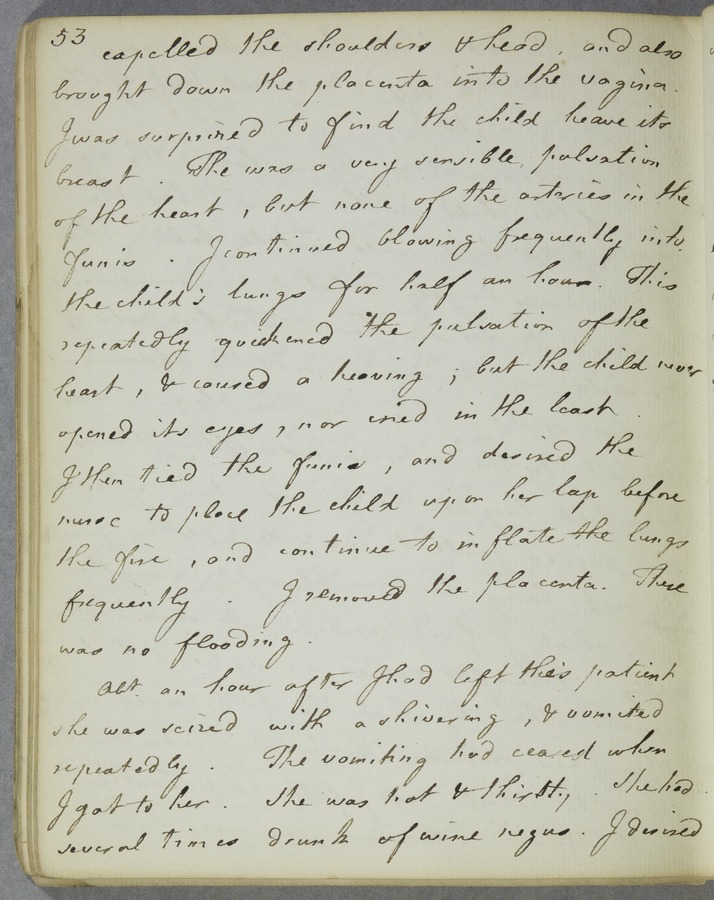 53
expelled the shoulders & head, and also
brought down the placenta into the vagina.
I was surprised to find the child heave its
breast. The was a very sensible pulsation
of the heart, but none of the arteries in the
funis. I continued blowing frequently into
the child's lungs for half an hour. This
repeatedly quickened the pulsation of the
heart, & caused a heaving; but the child never
opened its eyes, nor cried in the least.
I then tied the funis, and desired the
nurse to place the child upon her lap before
the fire, and continue to inflate the lungs
frequently. I removed the placenta. There
was no flooding.
Abt. an hour after I had left this patient
she was seized with a shivering, & vomited
repeatedly. The vomiting had ceased when
I got to her. She was hot & thirsty. She had
several times drunk of wine negus. I desired